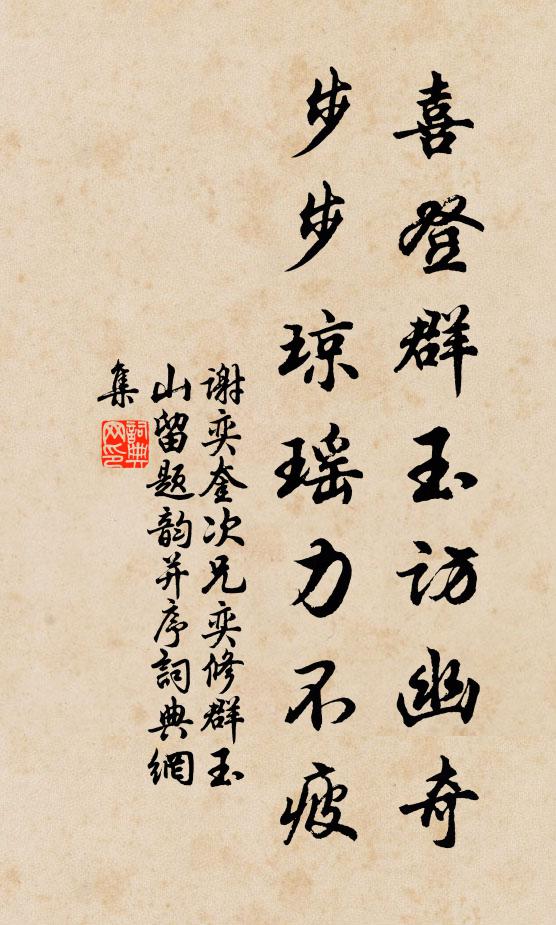 喜登群玉访幽奇
步步琼瑶力不疲
谢奕奎次兄奕修群玉
山留题韵并序詞典網
集
詞典
网印